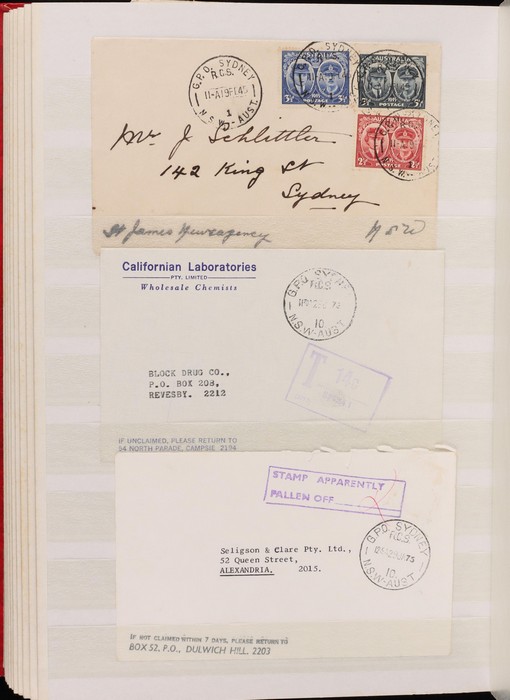 G.P.O. SYDNEY
R.D.S.
11-A19FE45
1
N.S.W-AUST.
AUSTRALIA
3½ᴰ POSTAGE
5½ᴰ POSTAGE
2½ᴰ POSTAGE
Mr J. Schlittler
142 King St
Sydney
St James Newsagency NSW
Californian Laboratories
PTY. LIMITED
Wholesale Chemists
G.P.O. SYDNEY
R.D.S.
10
NSW-AUST
BLOCK DRUG CO.,
P.O. BOX 208,
REVESBY. 2212
T 14c
IF UNCLAIMED, PLEASE RETURN TO
94 NORTH PARADE, CAMPSIE 2194
STAMP APPARENTLY
FALLEN OFF
G.P.O. SYDNEY
R.D.S.
10
NSW-AUST
Seligson & Clare Pty. Ltd.,
52 Queen Street,
ALEXANDRIA. 2015.
IF NOT CLAIMED WITHIN 7 DAYS, PLEASE RETURN TO
BOX 52, P.O., DULWICH HILL, 2203